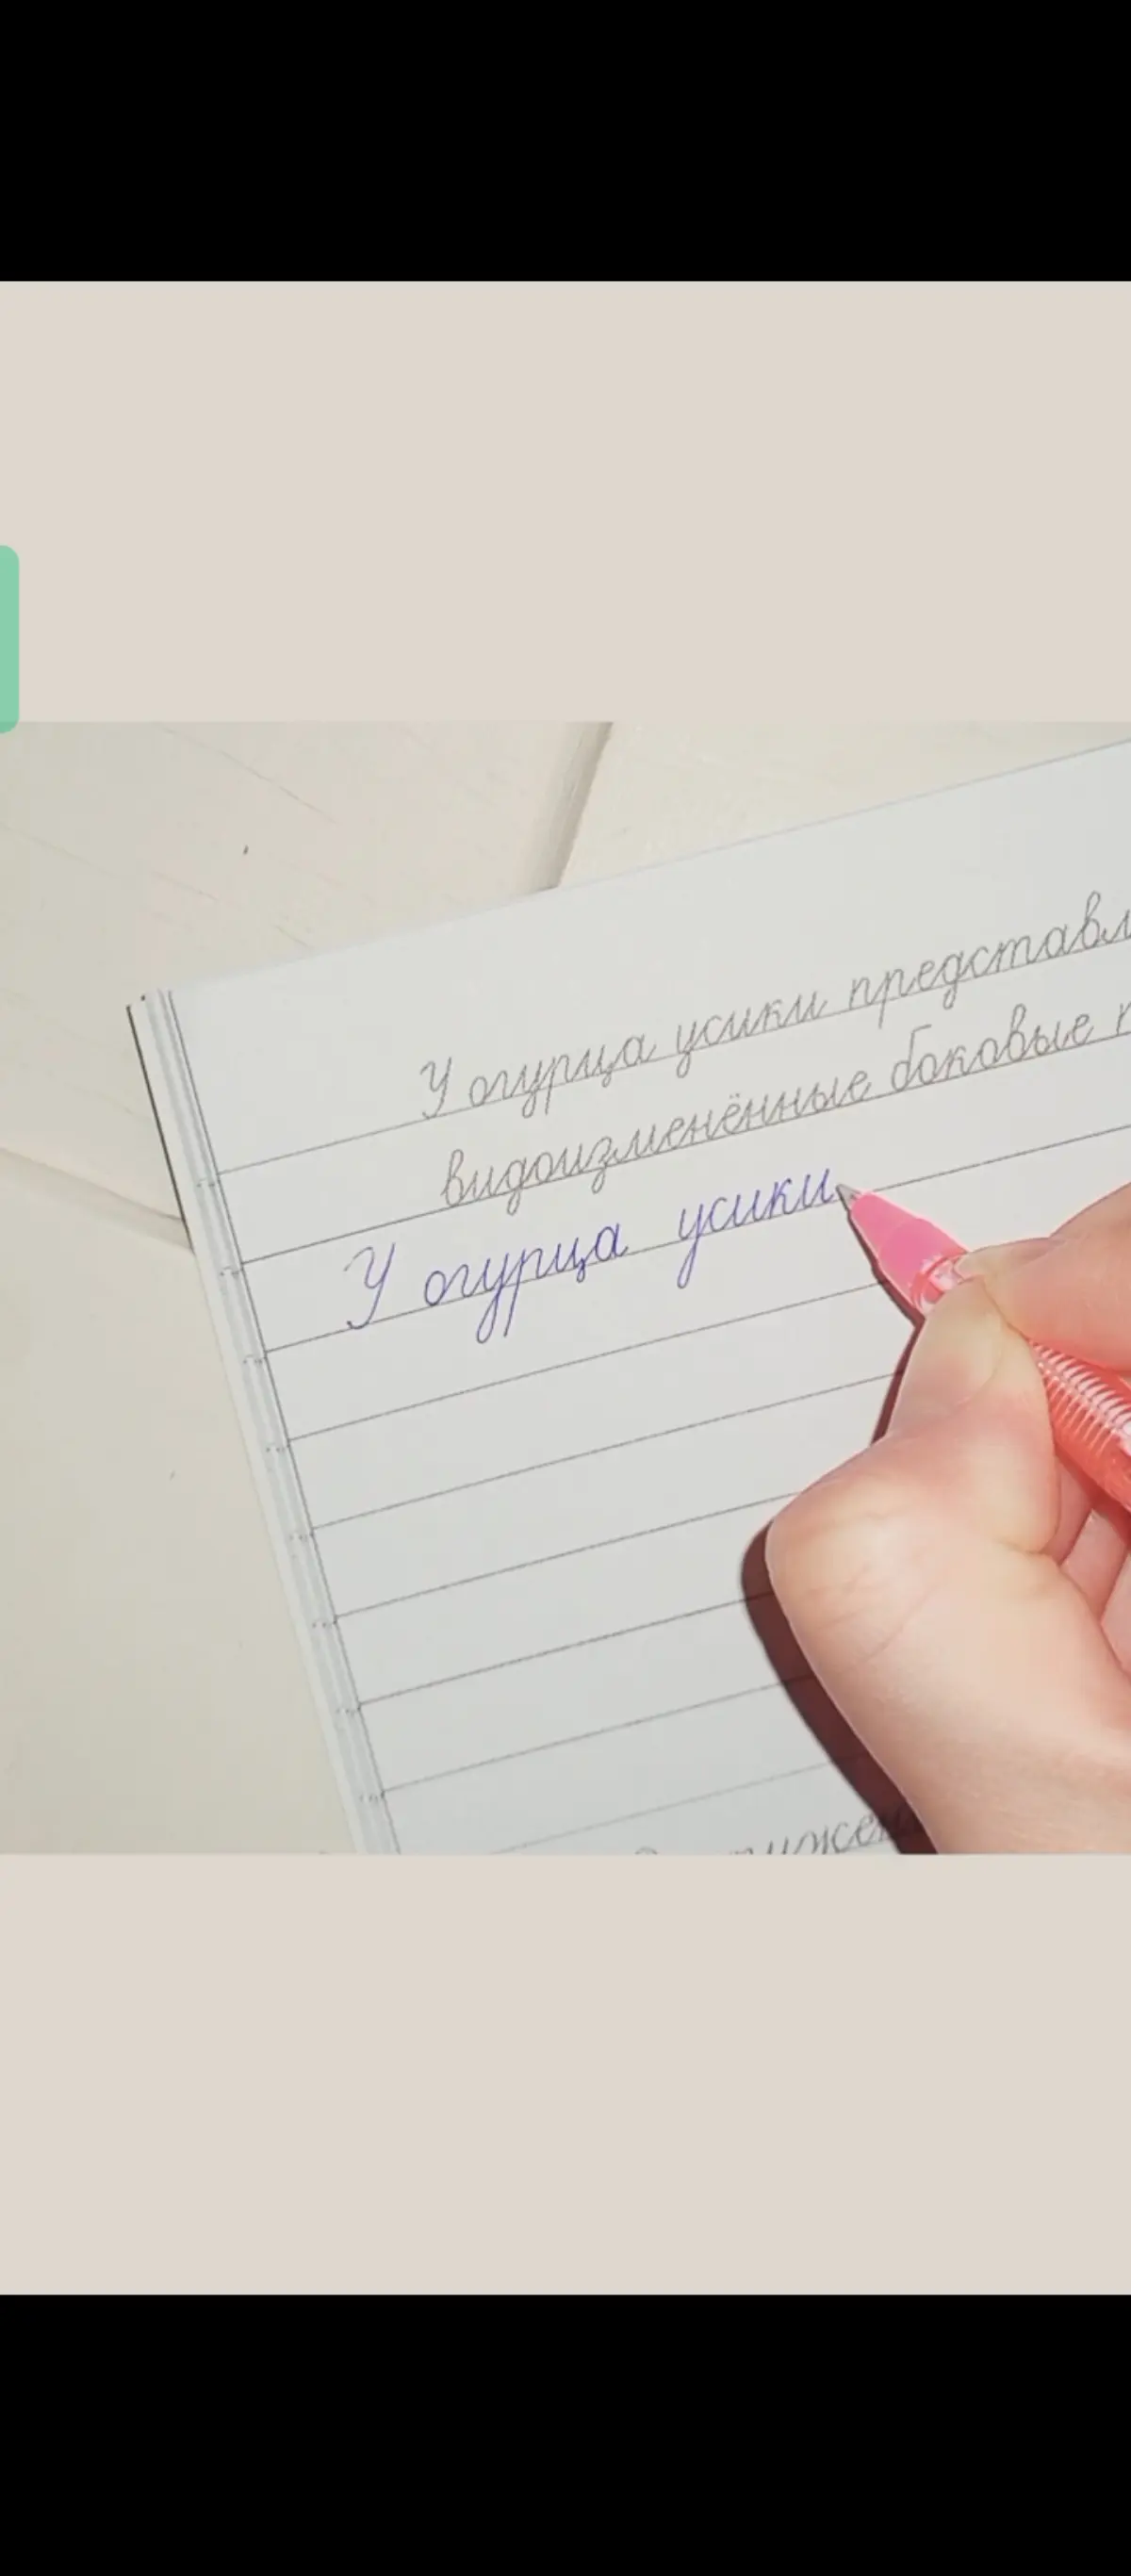 У огурца усики представл
видоизменённые боковые п
У огурца усики